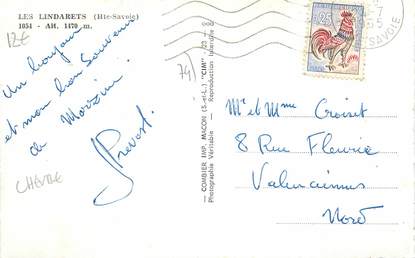 LES LINDARETS (Hte-Savoie)
1054 - Alt. 1470 m.
12€
Un bonjour
et mon bon souvenir
de Morzine.
Prevost
CHÈVRE
74)
COMBIER IMP. MACON (S.-et-L.) "CIM"
Photographie Véritable - Reproduction Interdite
0,25
SAVOIE
Mr et Mme Croizet
8 Rue Fleurie
Valenciennes
Nord